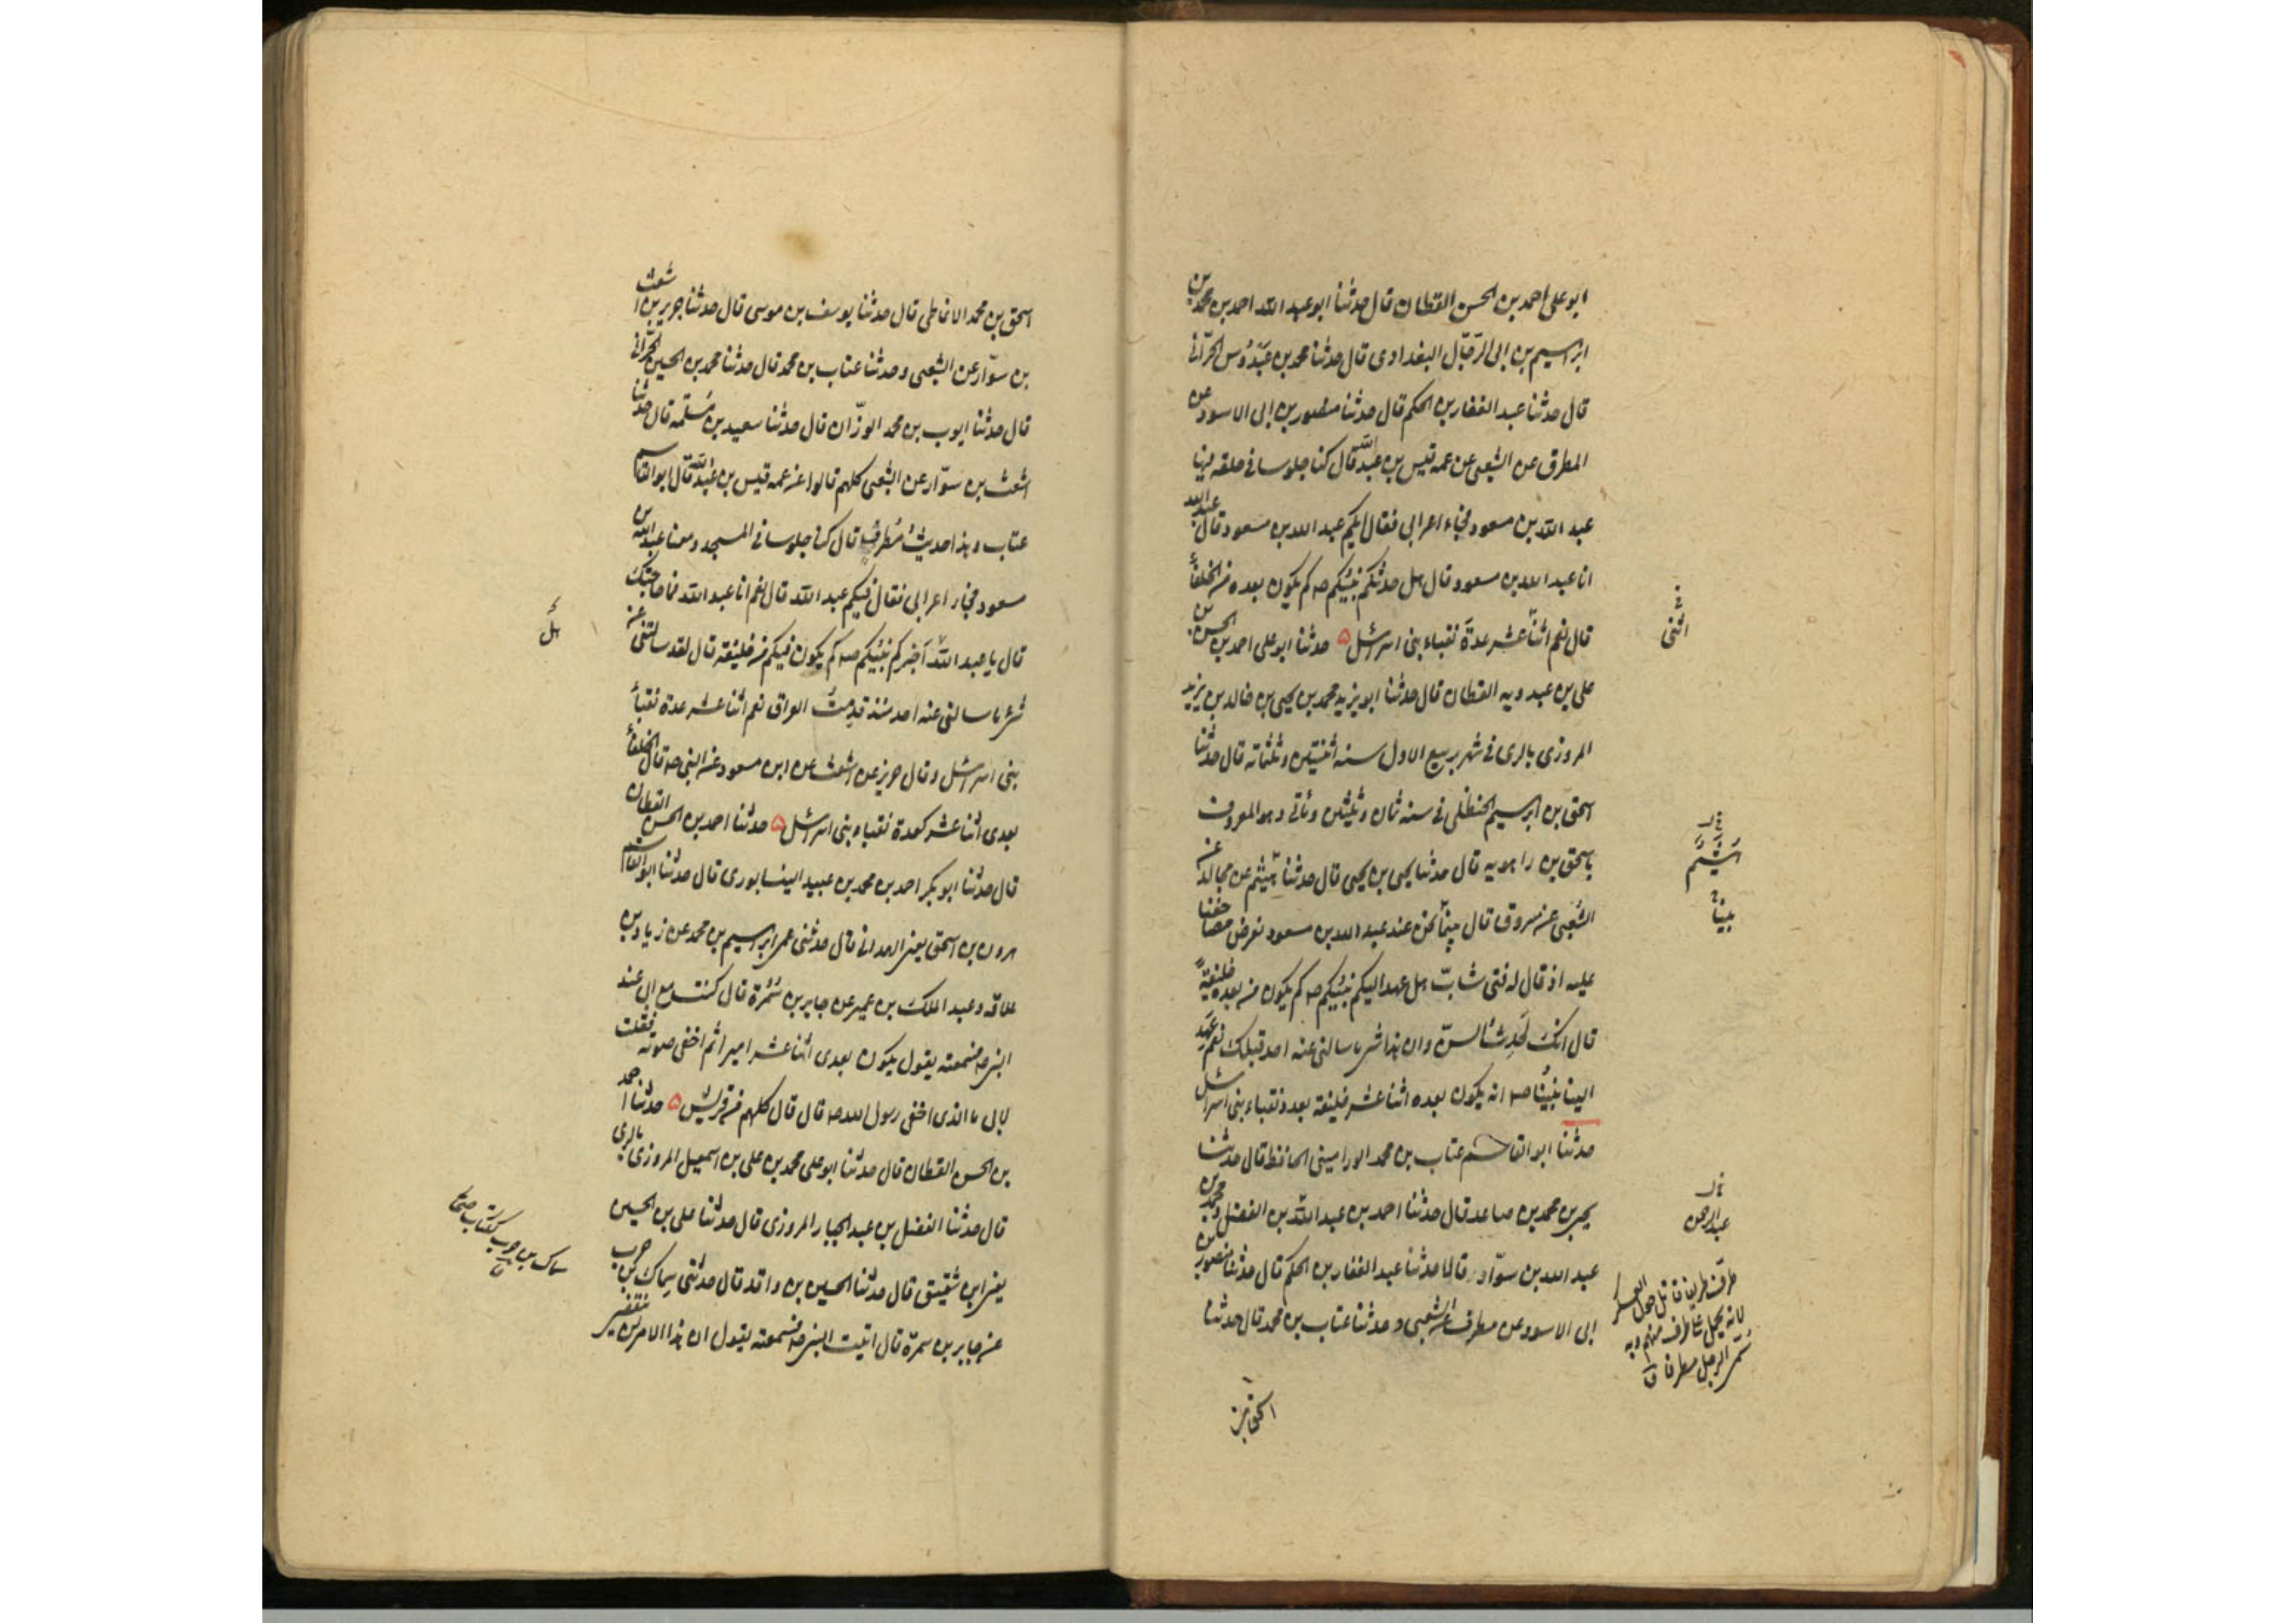 ابو على احمد بن الحسن القطان قال حدثنا ابو عبد الله احمد بن محمد بن
ابراسيم بن ابى الرّجّال البغدادى قال حدثنا محمد بن عَبْدُوس الحرّانى
قال حدثنا عبد الغفار بن الحكم قال حدثنا منصور بن ابى الاسود عن
المطرف عن الشعبى عن عمه قيس بن عبد الله قال كنا جلوسا فى حلقه فيها
عبد الله بن مسعود فجاء اعرابى فقال ايكم عبد الله بن مسعود قال عبد الله
انا عبد الله بن مسعود قال هل حدثكم نبيّكم صه كم يكون بعده من الخلفآء
قال نعم اثنا عشر عدةَ نقباء بنى اسرائيل ۵ حدثنا ابو على احمد بن الحسن بن
على بن عبد ويه القطان قال حدثنا ابو يزيد محمد بن يحيى بن خالد بن يزيد
المروزى بالرى فى شهر ربيع الاول سنه اثنتين وثلثمائه قال حدثنا
اسحق بن ابراسيم الحنظلى فى سنه ثمان وثلثين ومائتى وهو المعروف
باسحق بن راهويه قال حدثنا يحيى بن يحيى قال حدثنا هيثم عن مجالد عن
الشعبى عن مسروق قال بينما نحن عند عبد الله بن مسعود نعرض مصاحفنا
عليه اذ قال له فتى شابّ هل عهد اليكم نبيّكم صه كم يكون من بعده خليفةً
قال انك لَحَدِث السنّ وان هذا شئ ما سالنى عنه احد قبلك نعم عَهِدَ
الينا نبيّنا صه انه يكون بعده اثنا عشر خليفة بعدد نقباء بنى اسرائيل
حدثنا ابو القاسم عتاب بن محمد الورامينى الحافظ قال حدثنا
يحيى بن محمد بن صاعد قال حدثنا احمد بن عبد الله بن الفضل ومحمد بن
عبد الله بن سوّار قالا حدثنا عبد الغفار بن الحكم قال حدثنا منصور بن
ابى الاسود عن مطرف عن الشعبى وحدثنا عتاب بن محمد قال حدثنا
اسحق بن
اثنى
هشيم
بينا
عبد الرحمن
اسحق بن محمد الانماطى قال حدثنا يوسف بن موسى قال حدثنا جرير بن اشعث
بن سوّار عن الشعبى وحدثنا عتاب بن محمد قال حدثنا محمد بن الحسين الحرّانى
قال حدثنا ايوب بن محمد الوزّان قال حدثنا سعيد بن مَسْلَمه قال حدثنا
اشعث بن سوّار عن الشعبى كلهم قالوا عن عمه قيس بن عبد الله قال ابو القاسم
عتاب وهذا حديث مُطرف قال كنا جلوسا فى المسجد ومعنا عبد الله بن
مسعود فجاء اعرابى فقال فيكم عبد الله قال نعم انا عبد الله فما حاجتك
قال يا عبد الله أخبركم نبيّكم صه كم يكون فيكم من خليفته قال لقد سالتنى عن
شئ ما سالنى عنه احد منذ قدِمتُ العراق نعم اثنا عشر عدة نقبآء
بنى اسرائيل وقال جرير عن اشعث عن ابن مسعود عن النبى صه قال الخلفآء
بعدى اثنا عشر كعدة نقباء بنى اسرائيل ۵ حدثنا احمد بن الحسن القطان
قال حدثنا ابو بكر احمد بن محمد بن عبيد النيسابورى قال حدثنا ابو القاسم
هرون بن اسحق يعنى الهمدانى قال حدثنى عمى ابراسيم بن محمد عن زياد بن
علاقه وعبد الملك بن عمير عن جابر بن سَمُرة قال كنت مع ابى عند
النبى صه فسمعته يقول يكون بعدى اثنا عشر اميرا ثم اخفى صوته فقلت
لابى ما الذى اخفى رسول الله صه قال قال كلهم من قريش ۵ حدثنا احمد
بن الحسن القطان قال حدثنا ابو على محمد بن على بن اسمعيل المروزى بالرى
قال حدثنا الفضل بن عبد الجبار المروزى قال حدثنا على بن الحسين
يعنى ابن شقيق قال حدثنا الحسين بن واقد قال حدثنى سِماك بن حرب
عن جابر بن سمرة قال اتيت النبى صه فسمعته يقول ان هذا الامر لن ينقضى
هل
سماك بن حرب ككتاب